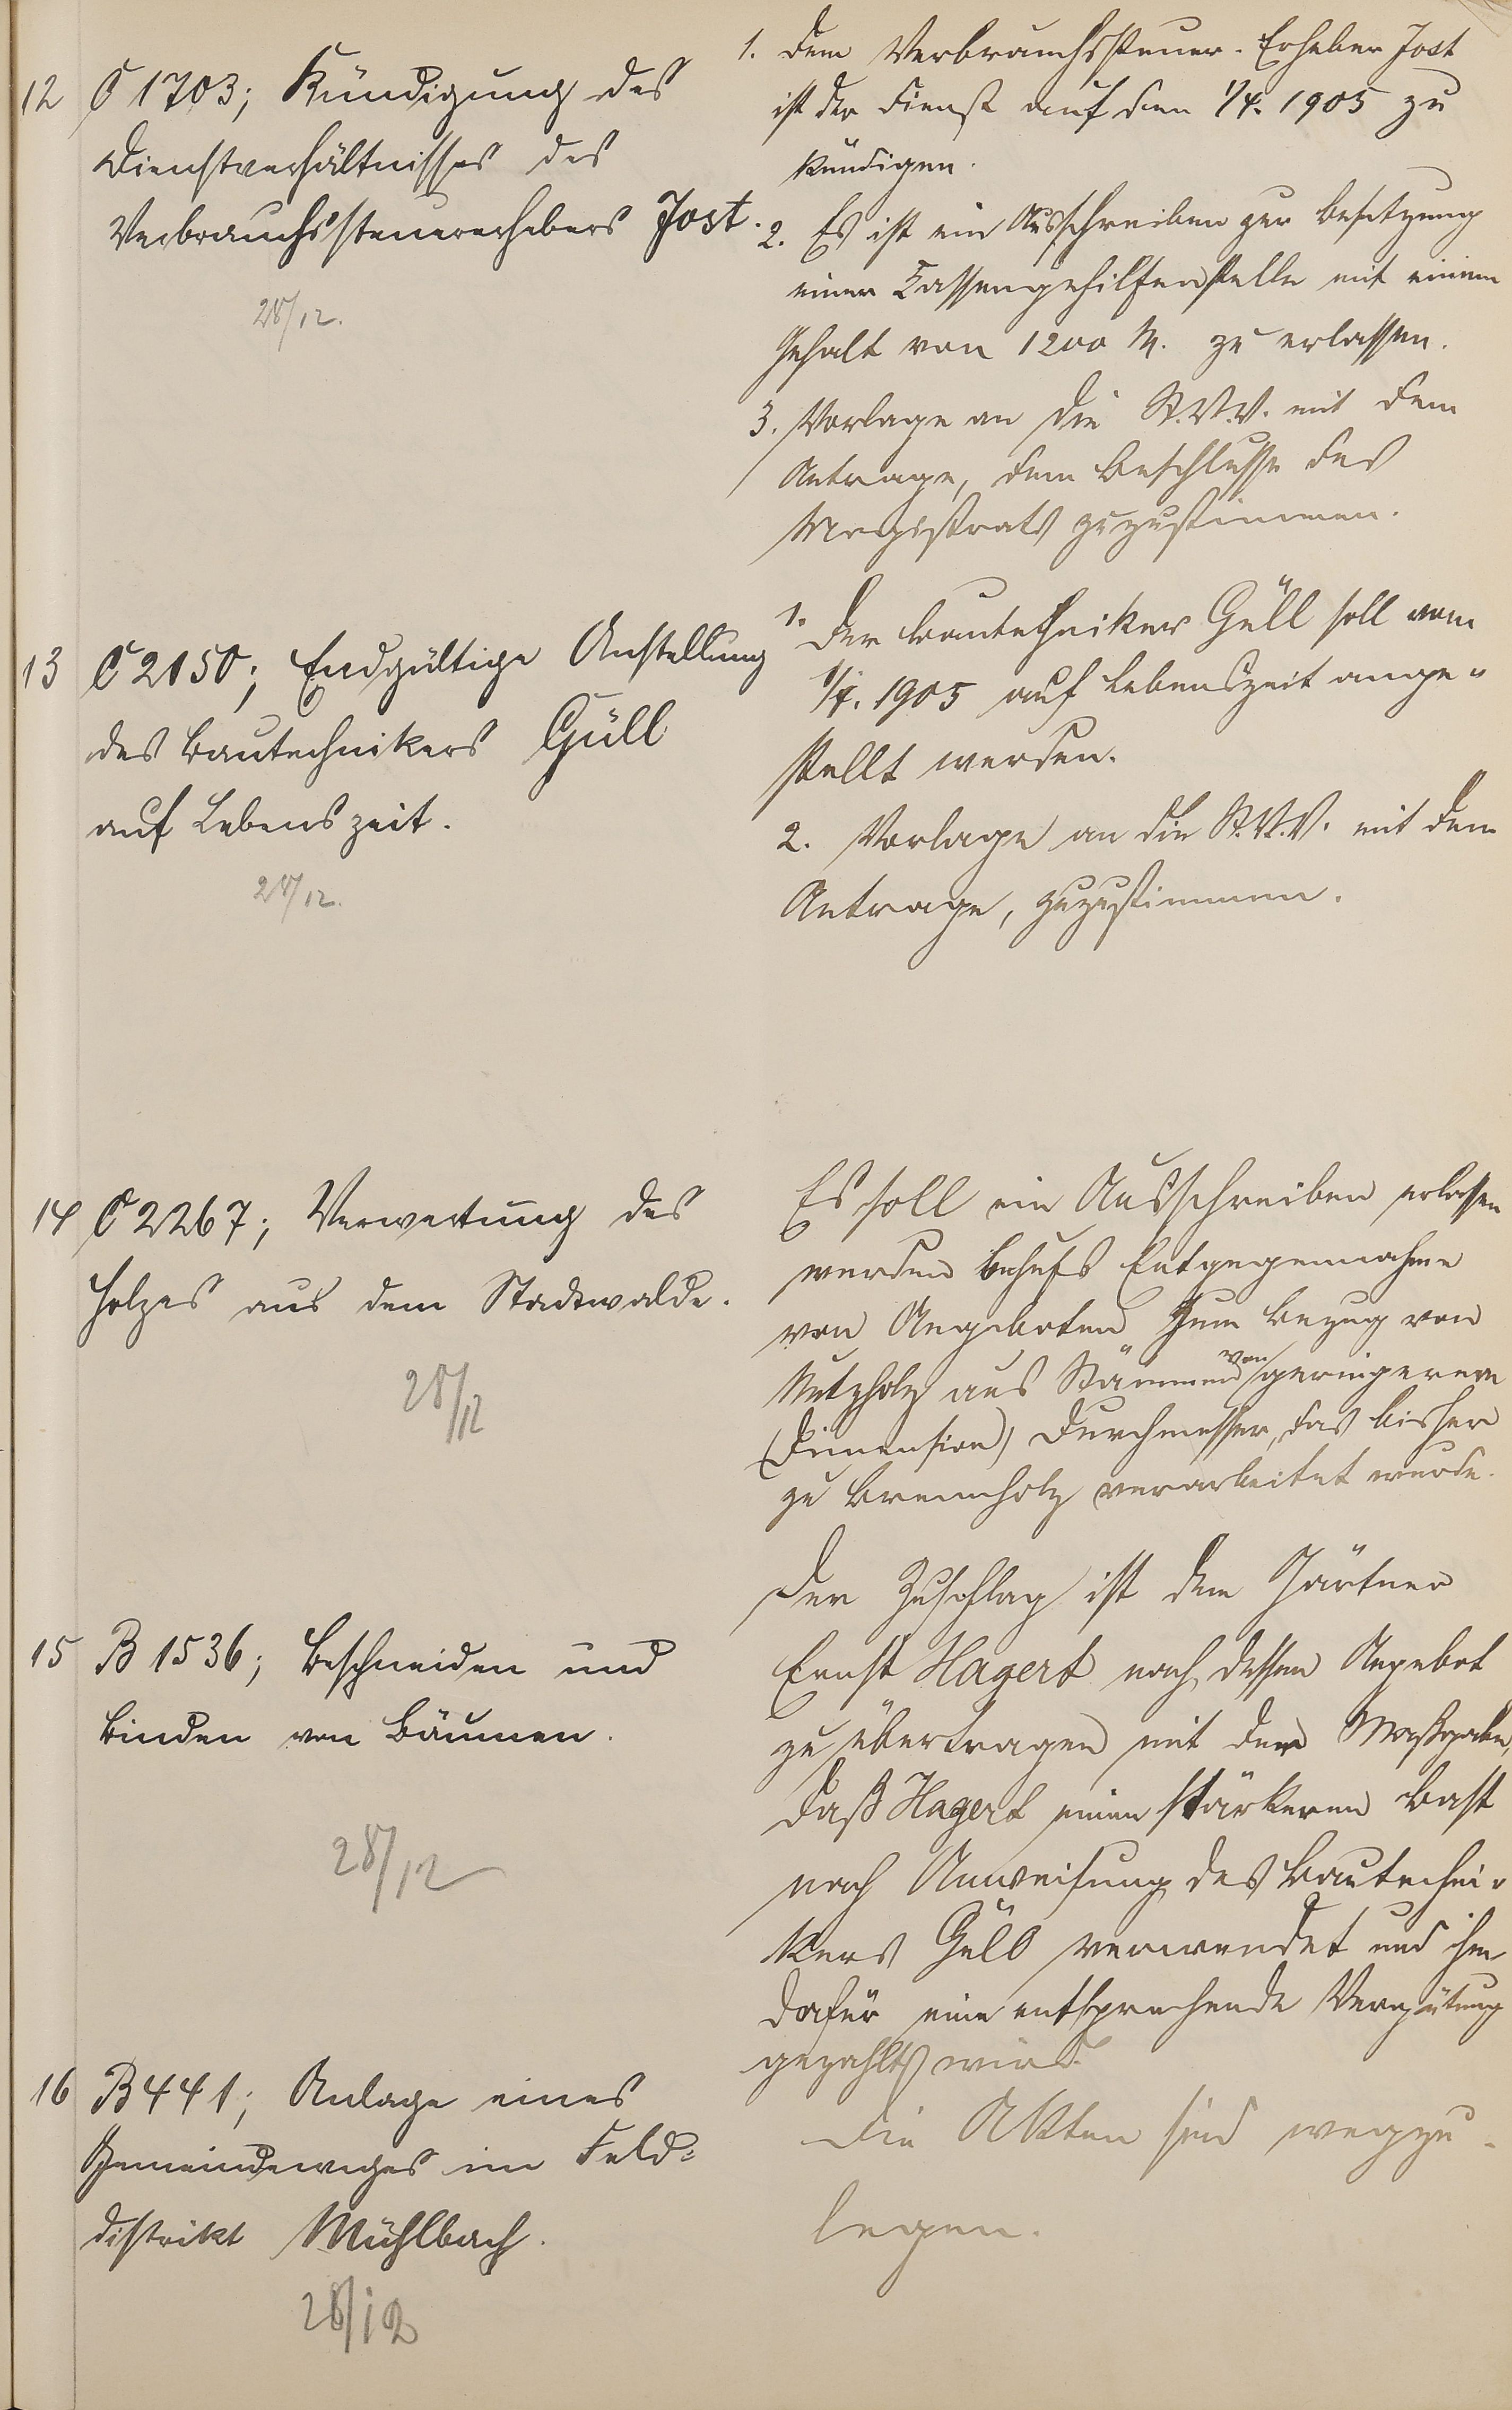 12 C 1703; Kündigung des
Dienstverhältnisses des
Verbrauchssteuererhebers Jost.
28/12.
1. Dem Verbrauchssteuer-Erheber Jost
ist der Dienst auf den 1/4. 1905 zu
kündigen.
2. Es ist ein Ausschreiben zur Besetzung
einer Kassengehilfenstelle mit einem
Gehalt von 1200 M. zu erlassen.
3. Vorlage an die St.V.V. mit dem
Antrage, dem Beschlusse des
Magistrats zuzustimmen.
13 C 2150; Endgültige Anstellung
des Bautechnikers Güll
auf Lebenszeit.
28/12.
1. Der Bautechniker Güll soll vom
1/4. 1905 auf Lebenszeit ange-
stellt werden.
2. Vorlage an die St.V.V. mit dem
Antrage, zuzustimmen.
14 C 2267; Verwertung des
Holzes aus dem Stadtwalde.
28/12
Es soll ein Ausschreiben erlassen
werden behufs Entgegennahme
von Angeboten zum Bezug von
Nutzholz aus Stämmen von geringerem
(Dimension) Durchmesser, das bisher
zu Brennholz verarbeitet wurde.
15 B 1536; Beschneiden und
Binden von Bäumen.
28/12
Der Zuschlag ist dem Gärtner
Ernst Hagert nach dessen Angebot
zu übertragen mit der Maßgabe,
daß Hagert einen stärkeren Bast
nach Anweisung des Bautechni-
kers Güll verwendet und ihm
dafür eine entsprechende Vergütung
gezahlt wird.
16 B 441; Anlage eines
Gemeindeweges im Feld-
distrikt Mühlbach.
28/12
Die Akten sind wegzu-
legen.